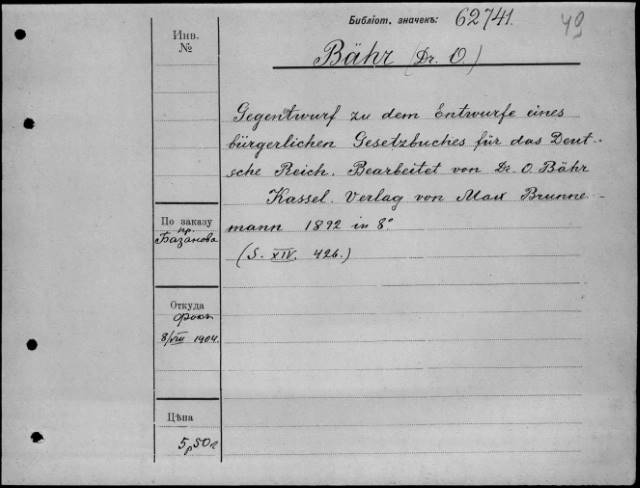 Библіот. значекъ: 62741. 49
Инв.
№
Bähr (Dr. O.)
Gegentwurf zu dem Entwurfe eines
bürgerlichen Gesetzbuches für das Deut-
sche Reich. Bearbeitet von Dr. O. Bähr
Kassel. Verlag von Max Brunne-
mann 1892 in 8°
(S. XIV. 426.)
По заказу
пр.
Базанова
Откуда
Фокъ
8/VIII 1904.
Цѣна
5 р 50 к